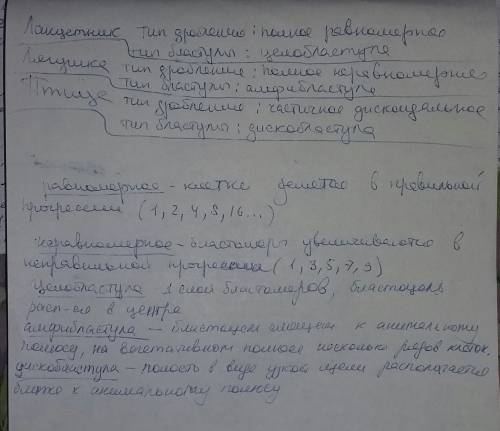 Ланцетник тип дробления : полное равномерное
тип бластулы : целобластула
Лягушка тип дробления : полное неравномерное
тип бластулы : амфибластула
Птица тип дробления : частичное дискоидальное
тип бластулы : дискобластула
равномерное - клетка делится в правильной
прогрессии (1, 2, 4, 8, 16...)
неравномерное - бластомеры увеличиваются в
неправильной прогрессии (1, 3, 5, 7, 9)
целобластула 1 слой бластомеров, бластоцель
расп-ся в центре
амфибластула — бластоцель смещен к анимальному
полюсу, на вегетативном полюсе несколько рядов клеток.
дискобластула - полость в виде узкой щели располагается
ближе к анимальному полюсу